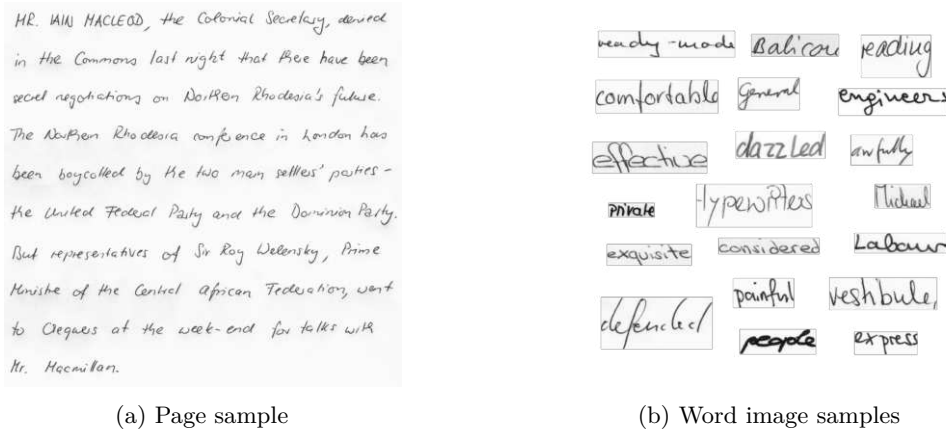 MR. IAIN MACLEOD, the Colonial Secretary, denied
in the Commons last night that there have been
secret negotiations on Northern Rhodesia's future.
The Northern Rhodesia conference in London has
been boycotted by the two main settlers' parties -
the United Federal Party and the Dominion Party.
But representatives of Sir Roy Welensky, Prime
Minister of the Central African Federation, went
to Chequers at the week-end for talks with
Mr. Macmillan.
(a) Page sample
ready-made Balicou reading
comfortable General engineers
effective dazzled awfully
private typewriters Michael
exquisite considered Labour
defended painful vestibule,
people express
(b) Word image samples